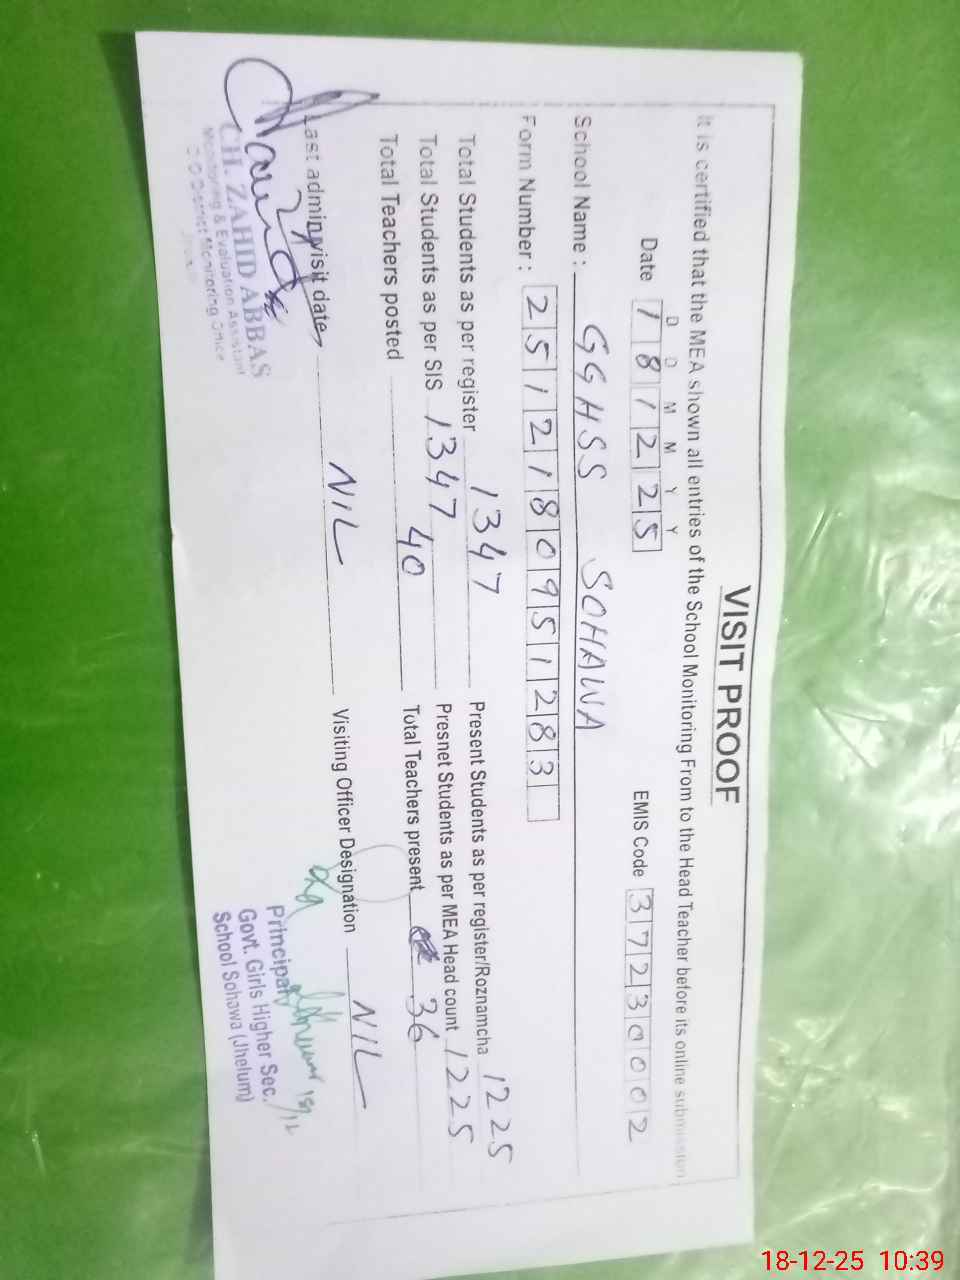 VISIT PROOF
It is certified that the MEA shown all entries of the School Monitoring From to the Head Teacher before its online submission
D D M M Y Y
Date 1 8 1 2 2 5 EMIS Code 3 7 2 3 0 0 0 2
School Name : GGHSS SOHAWA
Form Number : 2 5 1 2 1 8 0 9 5 1 2 8 3
Total Students as per register 1347 Present Students as per register/Roznamcha 1225
Total Students as per SIS 1347 Presnet Students as per MEA Head count 1225
Total Teachers posted 40 Total Teachers present 36
Last admin visit date NIL Visiting Officer Designation NIL
CH. ZAHID ABBAS
Monitoring & Evaluation Assistant
District Monitoring Office
Principal
Govt. Girls Higher Sec.
School Sohawa (Jhelum)
18-12-25 10:39